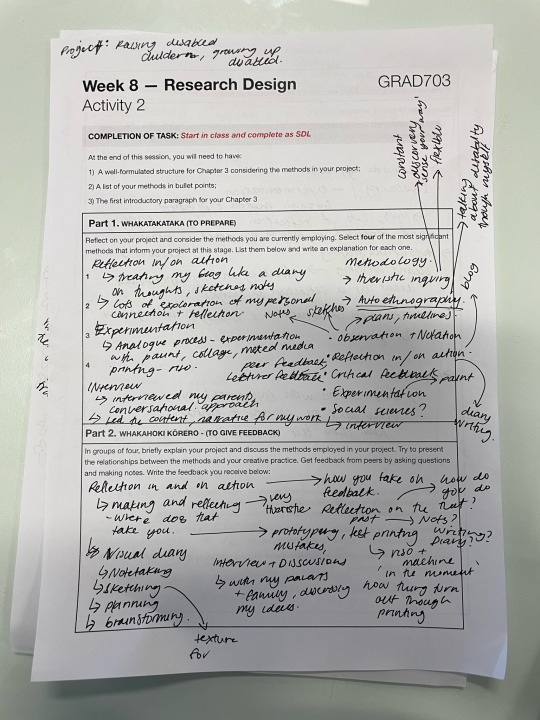 Project: Raising disabled
childeren, growing up
disabled.
Week 8 — Research Design
GRAD703
Activity 2
COMPLETION OF TASK: Start in class and complete as SDL
At the end of this session, you will need to have:
1) A well-formulated structure for Chapter 3 considering the methods in your project;
2) A list of your methods in bullet points;
3) The first introductory paragraph for your Chapter 3
constant
discovery
'sense your way'
flexible
talking
about disability
through myself
blog
Part 1. WHAKATAKATAKA (TO PREPARE)
Reflect on your project and consider the methods you are currently employing. Select four of the most significant
methods that inform your project at this stage. List them below and write an explanation for each one.
Reflection in/on action
1 ↳ treating my blog like a diary
on thoughts, sketches notes
2 ↳ lots of exploration of my personal
connection + reflection.
3 Experimentation
↳ Analogue process - experimentation
with paint, collage, mixed media
4 printing - riso.
Interview
↳ interviewed my parents,
conversational approach
↳ Led the content, narrative for my work
Methodology.
→ Heuristic inquiry
→ Autoethnography.
→ plans, timelines.
Notes
sketches
• Observation + Notation
• Reflection in/on action
peer feedback
Lecturer feedback
• Critical feedback
• Experimentation
→ paint
• Social sciences?
↳ interview
diary
writing.
Part 2. WHAKAHOKI KŌRERO - (TO GIVE FEEDBACK)
In groups of four, briefly explain your project and discuss the methods employed in your project. Try to present
the relationships between the methods and your creative practice. Get feedback from peers by asking questions
and making notes. Write the feedback you receive below:
Reflection in and on action
→ how you take on
feedback.
→ how do
you do
that?
↳ making and reflecting
→ very
Heuristic
- where does that
take you.
Reflection on the
past
→ Notes?
Writing?
Diary??
→ prototyping,
mistakes,
printing
↳ riso +
machine
'in the moment'
how thing turn
out though
printing
↳ Visual diary
↳ Notetaking
↳ sketching
↳ planning
↳ brainstorming.
Interview + Disscusions
↳ with my parents
+ family, discussing
my ideas.
texture
for